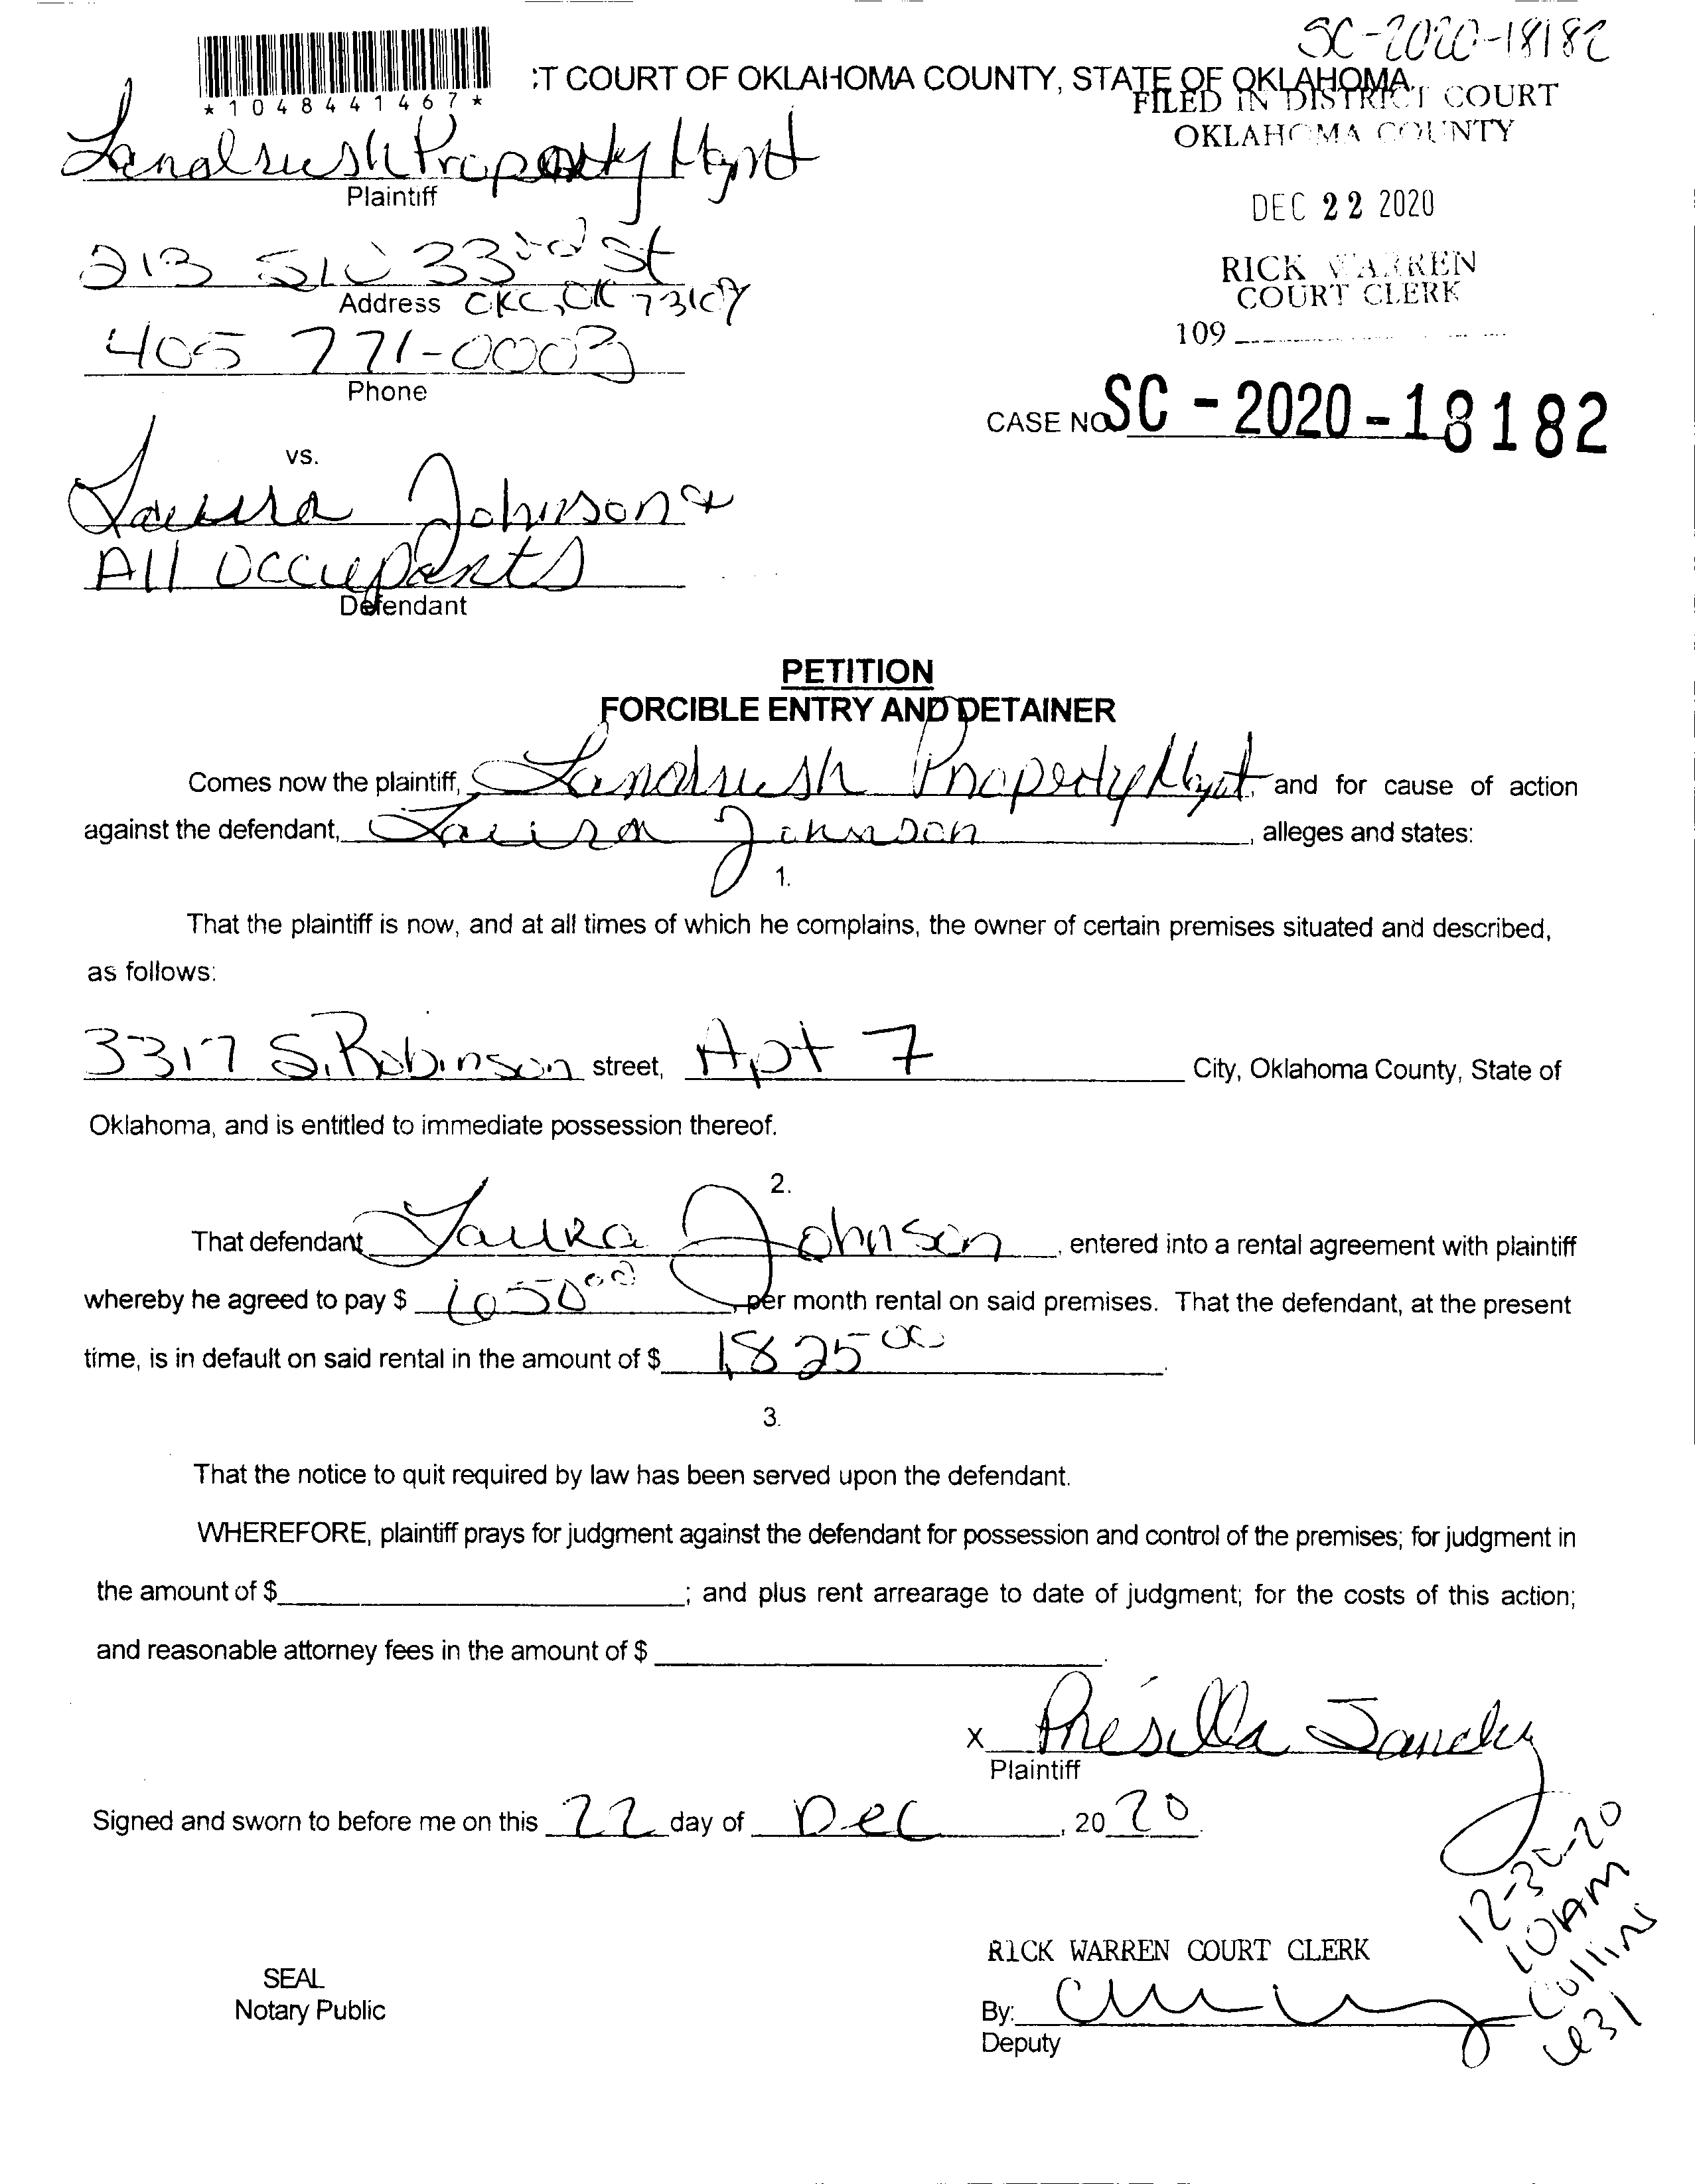 SC-2020-18182
:T COURT OF OKLAHOMA COUNTY, STATE OF OKLAHOMA
*1048441467*
FILED IN DISTRICT COURT
OKLAHOMA COUNTY
Landrush Property Mgmt
Plaintiff
DEC 22 2020
213 SW 33rd St
RICK WARREN
COURT CLERK
Address OKC, OK 73109
109
405 771-0003
Phone
CASE NO. SC-2020-18182
vs.
Laura Johnson &
All Occupants
Defendant
PETITION
FORCIBLE ENTRY AND DETAINER
Comes now the plaintiff, Landrush Property Mgmt, and for cause of action
against the defendant, Laura Johnson, alleges and states:
1.
That the plaintiff is now, and at all times of which he complains, the owner of certain premises situated and described,
as follows:
3317 S. Robinson street, Apt 7 City, Oklahoma County, State of
Oklahoma, and is entitled to immediate possession thereof.
2.
That defendant Laura Johnson, entered into a rental agreement with plaintiff
whereby he agreed to pay $ 650 00, per month rental on said premises. That the defendant, at the present
time, is in default on said rental in the amount of $ 1,825 00.
3.
That the notice to quit required by law has been served upon the defendant.
WHEREFORE, plaintiff prays for judgment against the defendant for possession and control of the premises; for judgment in
the amount of $ ; and plus rent arrearage to date of judgment; for the costs of this action;
and reasonable attorney fees in the amount of $ .
x Presilla
Plaintiff
Signed and sworn to before me on this 22 day of Dec, 2020.
12-30-20
10AM
Collins
431
RICK WARREN COURT CLERK
SEAL
Notary Public
By:
Deputy